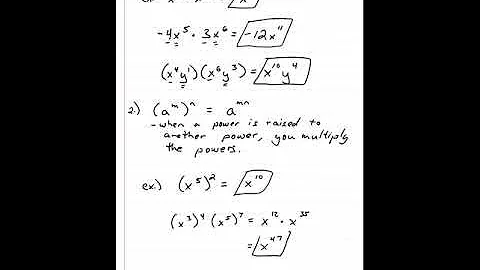 -4x⁵ · 3x⁶ = -12x¹¹
(x⁴y¹)(x⁶y³) = x¹⁰y⁴
2.) (aᵐ)ⁿ = aᵐⁿ
- when a power is raised to
another power, you multiply
the powers.
ex.) (x⁵)² = x¹⁰
(x³)⁴ (x⁵)⁷ = x¹² · x³⁵
= x⁴⁷